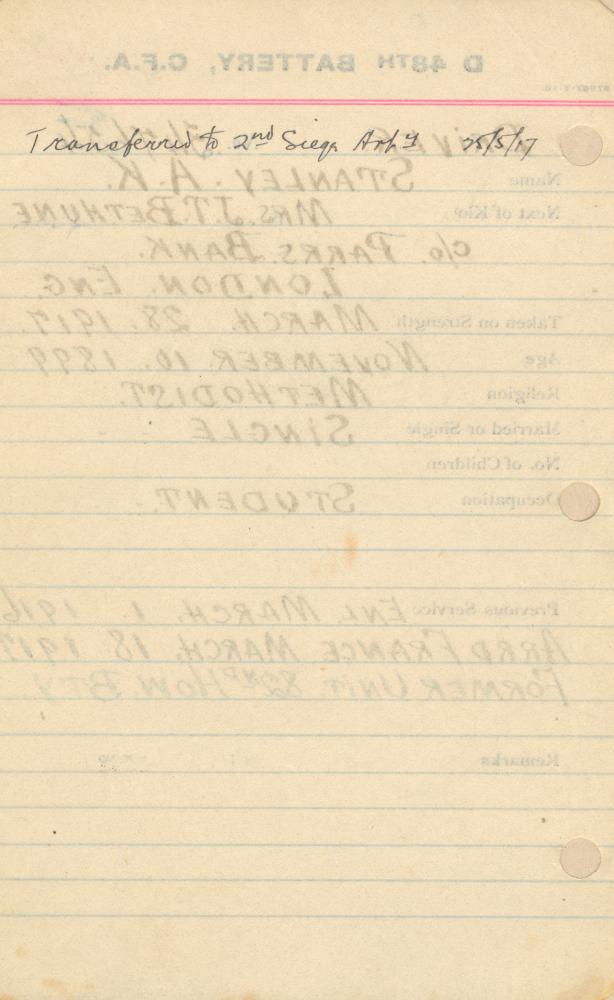 Transferred to 2nd Siege Arty 25/5/17
D 48TH BATTERY, C.F.A.
Name STANLEY. A. K.
Next of Kin MRS. J.T. BETHUNE
c/o. PARRS. BANK.
LONDON. ENG.
Taken on Strength MARCH. 28. 1917.
Age NOVEMBER. 10. 1899
Religion METHODIST.
Married or Single SINGLE
No. of Children
Occupation STUDENT.
Previous Service ENL. MARCH. 1. 1916
ARRD FRANCE MARCH. 18 1917
FORMER UNIT. 82ND HOW. BTY.
Remarks